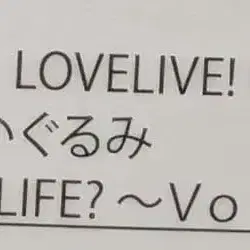 LOVELIVE!
いぐるみ
LIFE? ～Vo